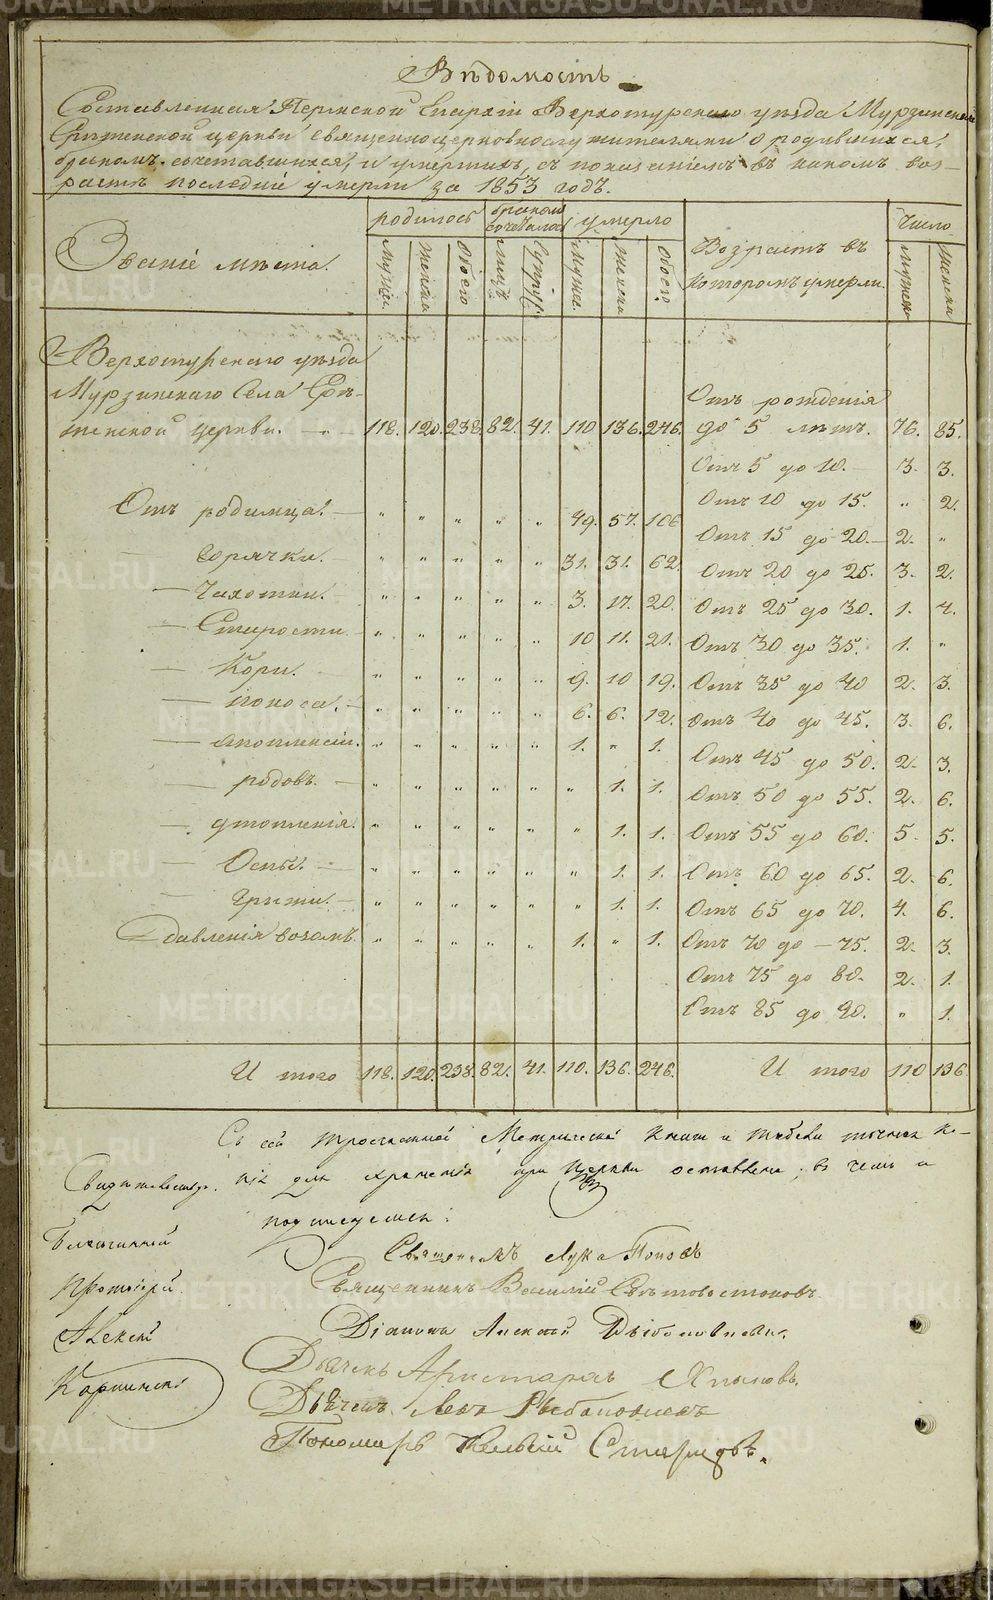 Вѣдомость
Составленная Пермской Епархіи Верхотурскаго уѣзда Мурзинской
Срѣтенской церкви священноцерковнослужителями о родившихся,
бракомъ сочетавшихся, и умершихъ, съ показаніемъ въ какомъ воз-
растѣ послѣдніе умерли за 1853 годъ.
Званіе мѣста. родилось бракомъ сочеталось умерло Возрастъ въ которомъ умерли. Число
Мужес. Женска Обоего лицъ Супруг. Мужес. Женска Обоего мужеска женска
Верхотурскаго уѣзда
Мурзинскаго Села Срѣ-
тенской церкви. 118. 120. 238. 82. 41. 110 136. 246. Отъ рожденія до 5 лѣтъ. 76. 85.
Отъ 5 до 10. 3. 3.
Отъ 10 до 15. „ 2.
Отъ родимца. „ „ „ „ „ 49. 57. 106 Отъ 15 до 20. 2. „
— Горячки. „ „ „ „ „ 31. 31. 62. Отъ 20 до 25. 3. 2.
— Чахотки. „ „ „ „ „ 3. 17. 20. Отъ 25 до 30. 1. 4.
— Старости „ „ „ „ „ 10 11. 21. Отъ 30 до 35. 1. „
— Кори. „ „ „ „ „ 9. 10 19. Отъ 35 до 40 2. 3.
— поноса. „ „ „ „ „ 6. 6. 12. Отъ 40 до 45. 3. 6.
— апоплексіи. „ „ „ „ „ 1. „ 1. Отъ 45 до 50. 2. 3.
— родовъ. „ „ „ „ „ „ 1. 1. Отъ 50 до 55. 2. 6.
— утопленія. „ „ „ „ „ „ 1. 1. Отъ 55 до 60. 5. 5.
— Оспы. „ „ „ „ „ „ 1. 1. Отъ 60 до 65. 2. 6.
— Грыжи. „ „ „ „ „ „ 1. 1. Отъ 65 до 70. 4. 6.
Задавленія возомъ. „ „ „ „ „ 1. „ 1. Отъ 70 до 75. 2. 3.
Отъ 75 до 80. 2. 1.
Отъ 85 до 90. „ 1.
И того 118. 120. 238. 82. 41. 110. 136. 246. И того 110 136.
Съ сей Метрической книги и табели точная ко-
пія для храненія при Церкви оставлена, въ чемъ и
подписуемся:
Священникъ Лука Поповъ
Священникъ Василій Свѣтовостоковъ
Діаконъ Алексѣй
Дьячекъ Аристархъ Хлыновъ.
Дьячекъ
Пономарь Старцовъ.
Свидетельствов.
Благочинный
Протоіерей
Алексій
Карпинскій
METRIKI.GASO-URAL.RU